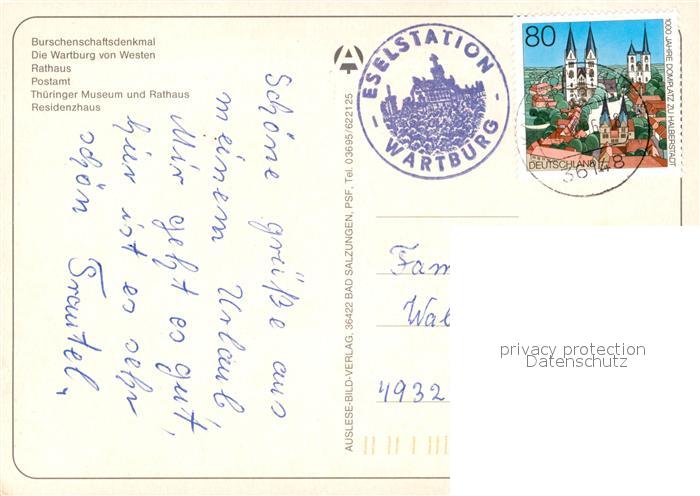 Burschenschaftsdenkmal
Die Wartburg von Westen
Rathaus
Postamt
Thüringer Museum und Rathaus
Residenzhaus
Schöne grüße aus
meinem Urlaub,
Mir geht es gut,
hier ist es sehr
schön Trautel.
AUSLESE-BILD-VERLAG, 36422 BAD SALZUNGEN, PSF, Tel. 03695/622125
- ESELSTATION -
WARTBURG
80
1000 JAHRE DOMPLATZ ZU HALBERSTADT
DEUTSCHLAND
36148
Fam
Wal
4932
privacy protection
Datenschutz